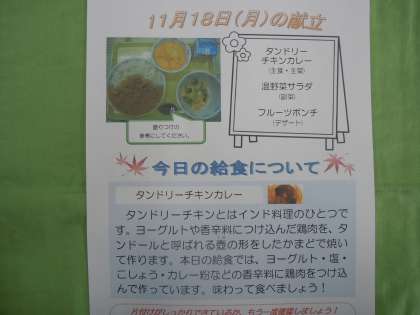 11月18日(月)の献立
タンドリー
チキンカレー
(主食・主菜)
温野菜サラダ
(副菜)
フルーツポンチ
(デザート)
盛りつけの
参考にしてください。
今日の給食について
タンドリーチキンカレー
タンドリーチキンとはインド料理のひとつで
す。ヨーグルトや香辛料につけ込んだ鶏肉を、タ
ンドールと呼ばれる壺の形をしたかまどで焼い
て作ります。本日の給食では、ヨーグルト・塩・
こしょう・カレー粉などの香辛料に鶏肉をつけ込
んで作っています。味わって食べましょう!
片付けがしっかりできているか、もう一度確認しましょう!